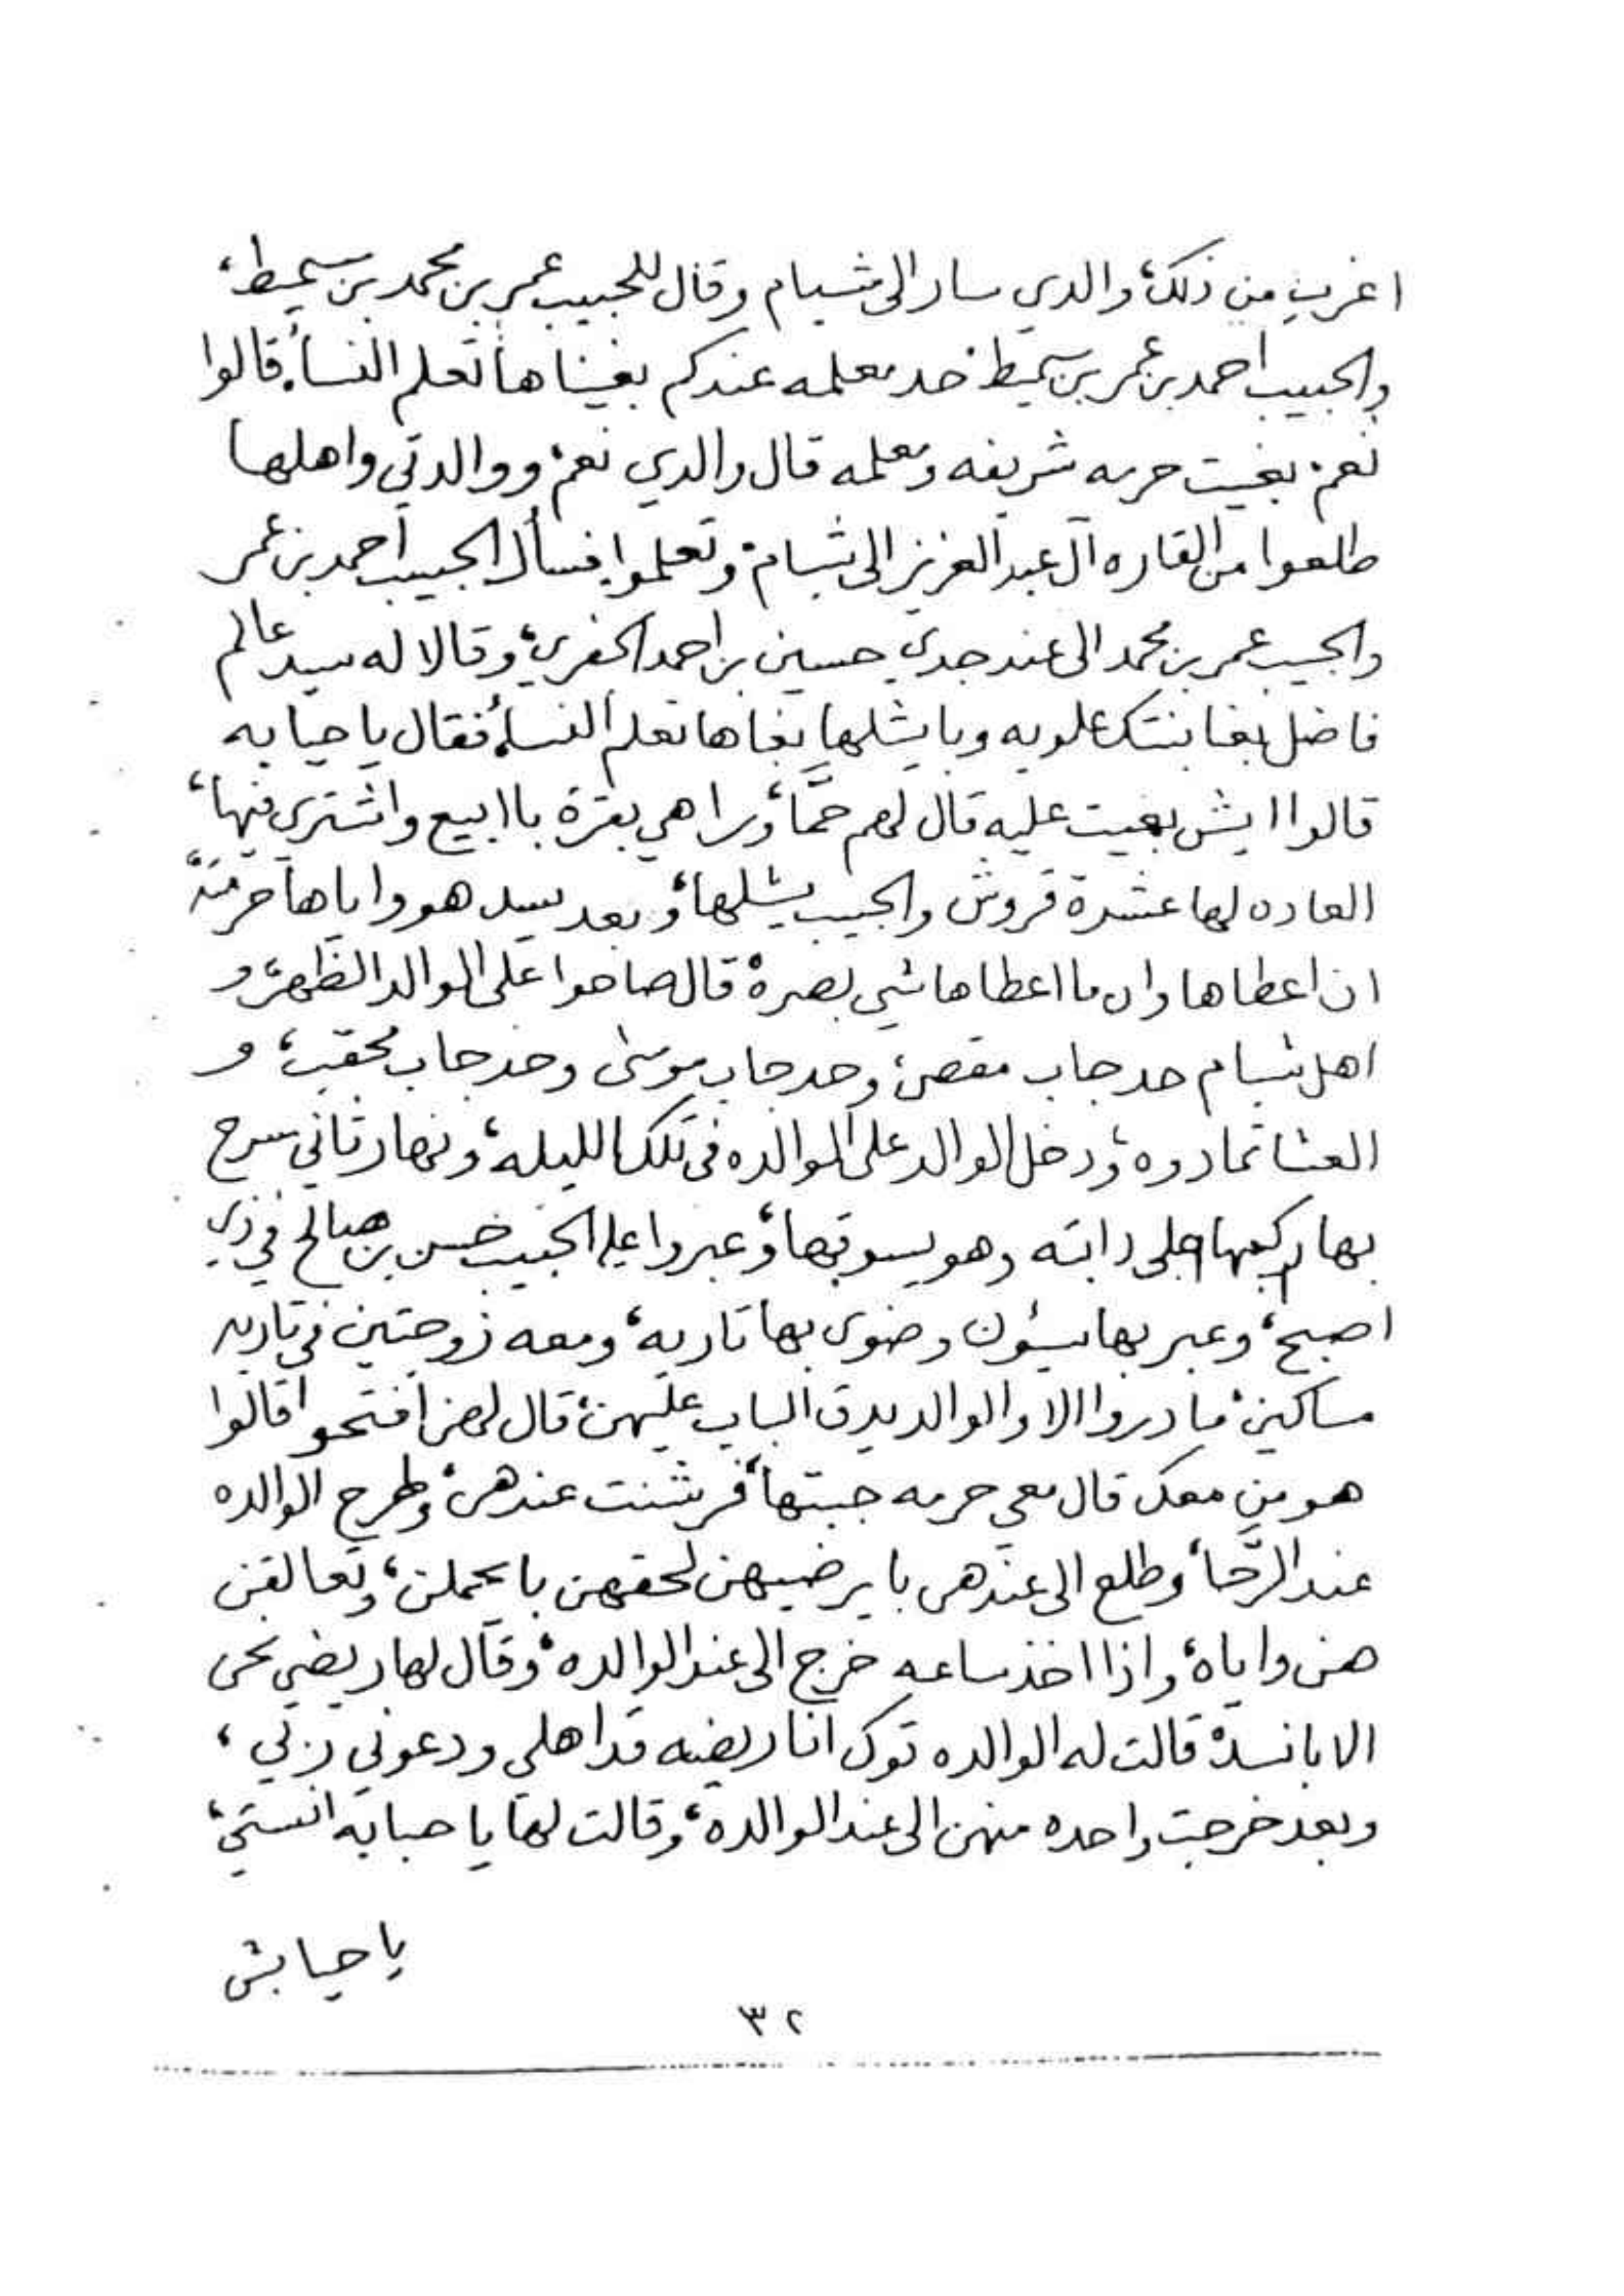 اغرب من ذلك، والدي سار الى شبام وقال للحبيب عمر بن محمد بن سميط،
والحبيب احمد بن عمر بن سميط حد معلمه عندكم بغيناها تعلم النساء، قالوا
نعم، بغيت حرمه شريفه ومعلمه قال والدي نعم، ووالدتي واهلها
طلعوا من القاره آل عبد العزيز الى شبام، وتعلموا، فسأل الحبيب احمد بن عمر
والحبيب عمر بن محمد الى عند جدي حسين بن احمد الجفري، وقالا له سيد عالم
فاضل بغا بنتك علويه وبايشلها بغاها تعلم النساء، فقال ياحبابه
قالوا ايش بغيت عليه قال لهم حمَّا، وراهي بقرة با ابيع واشتري فيها،
العاده لها عشرة قروش والحبيب يشلها، وبعد يسد هو واياها حرمته،
ان اعطاها وان ما اعطاها شي بصره، قال صاحوا على الوالد الظهر، و
اهل شبام حد جاب مقص، وحد جاب موسى وحد جاب محقب، و
العشا تمادوه، ودخل الوالد على الوالده في تلك الليله، ونهار ثاني سرح
بها ركبها على دابته وهو يسوقها، وعبروا على الحبيب حسن بن صالح في ذي
اصبح، وعبر بها سيؤن وضوى بها تاربه، ومعه زوجتين في تاربه
مساكين، مادروا الا والوالد يدق الباب عليهن، قال لهن افتحوا قالوا
هو من معك قال معي حرمه جبتها، فرشنت عندهن، وطرح الوالده
عند الرَّحا، وطلع الى عندهن با يرضيهن لحقهن با يحملن، وتعالقن
هن واياه، واذا اخذ ساعه خرج الى عند الوالده، وقال لها ريضي نحن
الا بانسد، قالت له الوالده توك انا ريضه قد اهلي ودعوني زني،
وبعد خرجت واحده منهن الى عند الوالده، وقالت لها ياحبابه انستي،
ياحبابش
٣٢